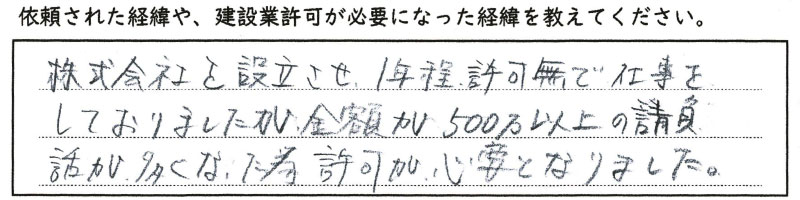 依頼された経緯や、建設業許可が必要になった経緯を教えてください。
株式会社を設立させ、1年程、許可無で仕事を
しておりましたが、金額が500万以上の請負
話が、多くなった為 許可が、必要となりました。